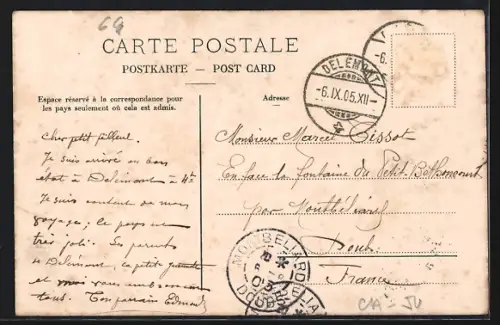 69
CARTE POSTALE
POSTKARTE — POST CARD
Espace réservé à la correspondance pour
les pays seulement où cela est admis.
Adresse
DELÉMONT
-6.IX.05.XII-
-6.
Cher petit filleul.
Je suis arrivé en bon
état à Delémont à 4h
Je suis content de mon
voyage; le pays est
très joli. Les parents
de Delémont, la petite
et moi vous embrassons
tous. Ton parrain Edmond
Monsieur Marcel Tissot
En face la fontaine du Petit-Bethoncourt
par Montbéliard
Doubs
France
MONTBELIARD
DOUBS
CIA - JU